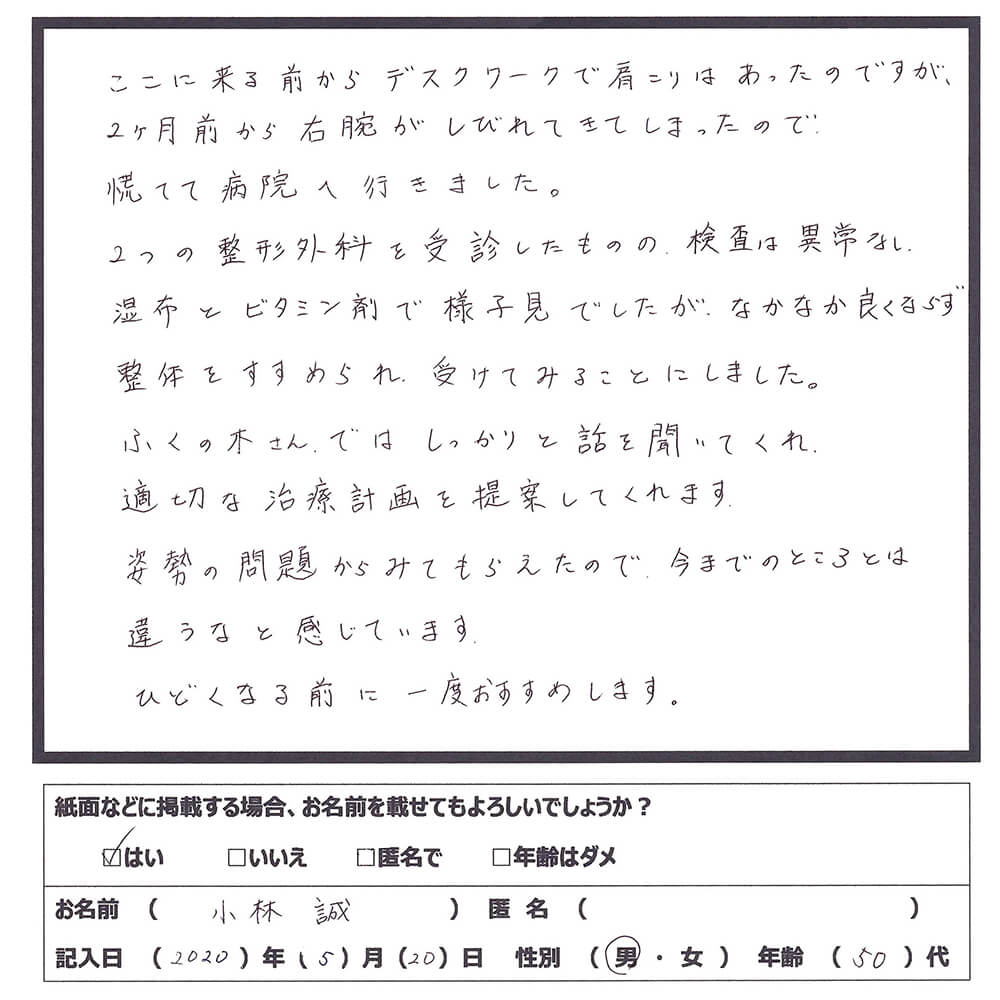 ここに来る前からデスクワークで肩こりはあったのですが、
2ヶ月前から右腕がしびれてきてしまったので、
慌てて病院へ行きました。
2つの整形外科を受診したものの、検査は異常なし、
湿布とビタミン剤で様子見でしたが、なかなか良くならず
整体をすすめられ、受けてみることにしました。
ふくの木さんではしっかりと話を聞いてくれ、
適切な治療計画を提案してくれます。
姿勢の問題からみてもらえたので、今までのところとは
違うなと感じています。
ひどくなる前に一度おすすめします。
紙面などに掲載する場合、お名前を載せてもよろしいでしょうか？
☑はい □いいえ □匿名で □年齢はダメ
お名前 （ 小林 誠 ） 匿名 （ ）
記入日 （2020）年（5）月（20）日 性別 （男・女） 年齢 （50）代